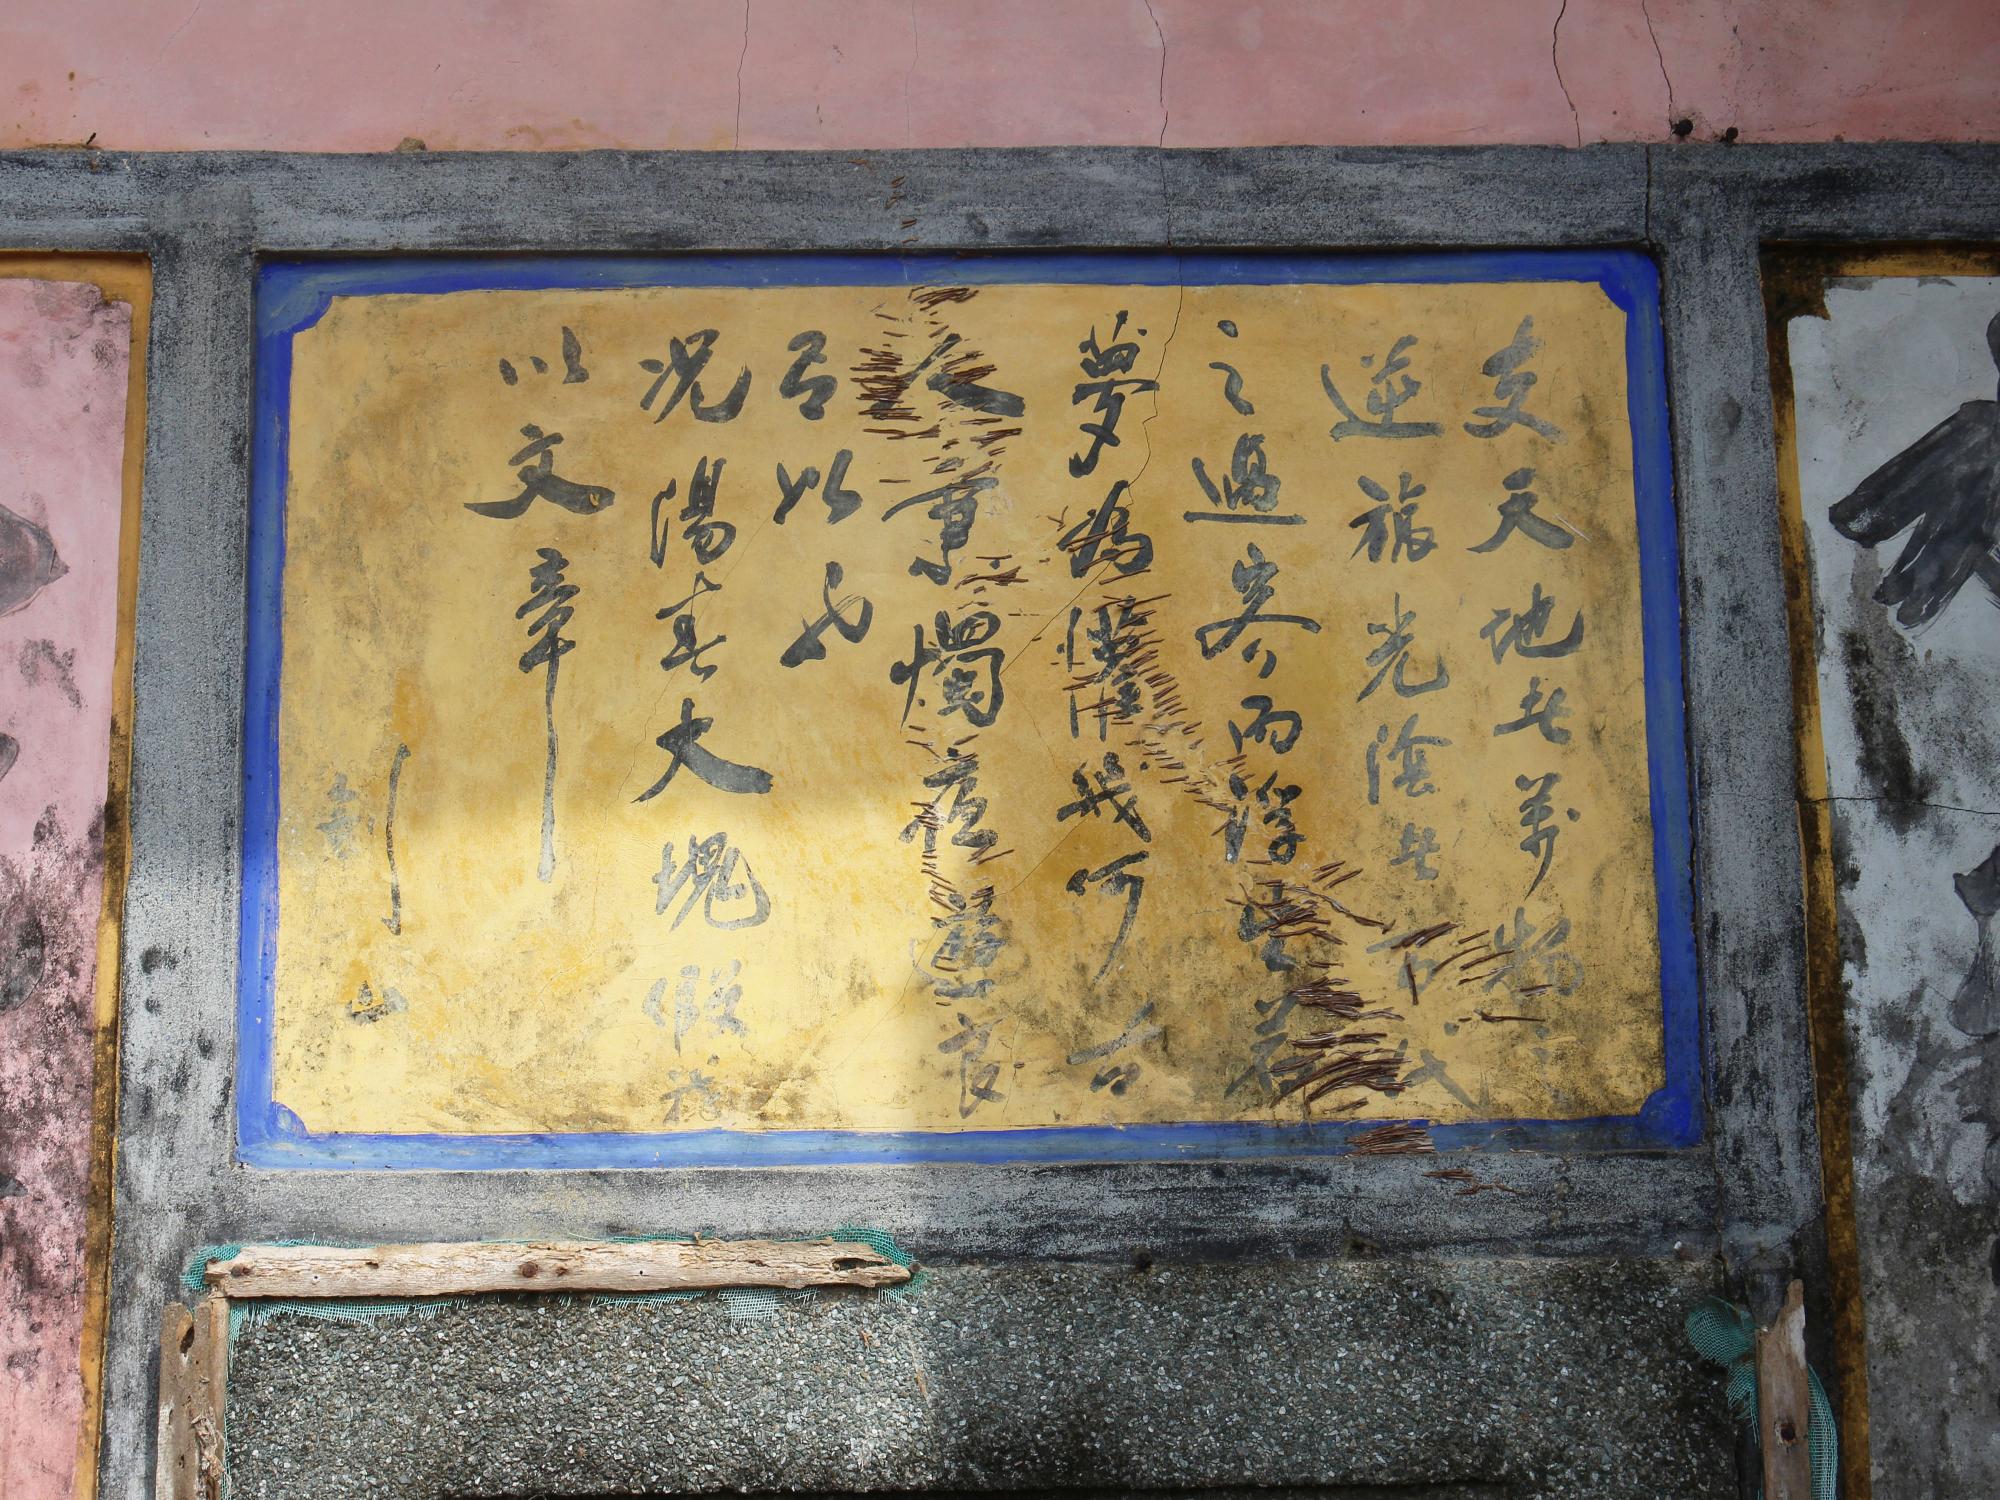 夫天地者萬物之
逆旅光陰者百代
之過客而浮生若
夢為懽幾何古
人秉燭夜遊良
有以也
況陽春大塊假我
以文章
劍山